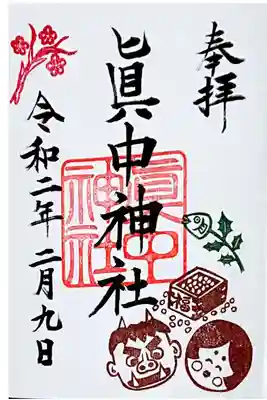 奉拝
眞中神社
令和二年 二月九日
眞中
神社
福